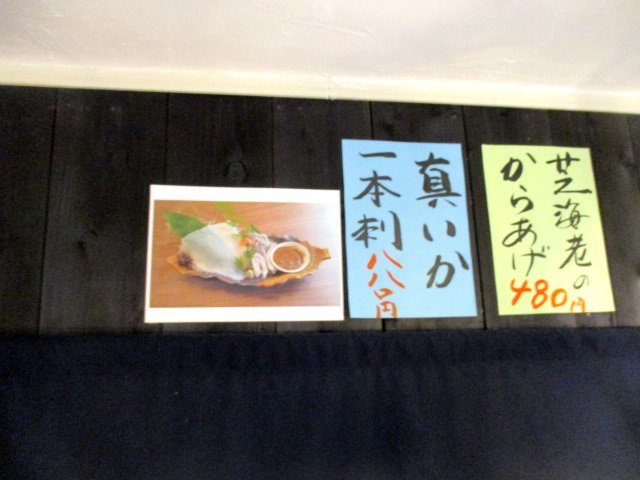 芝海老の
からあげ
480円
真いか
一本刺八八〇円